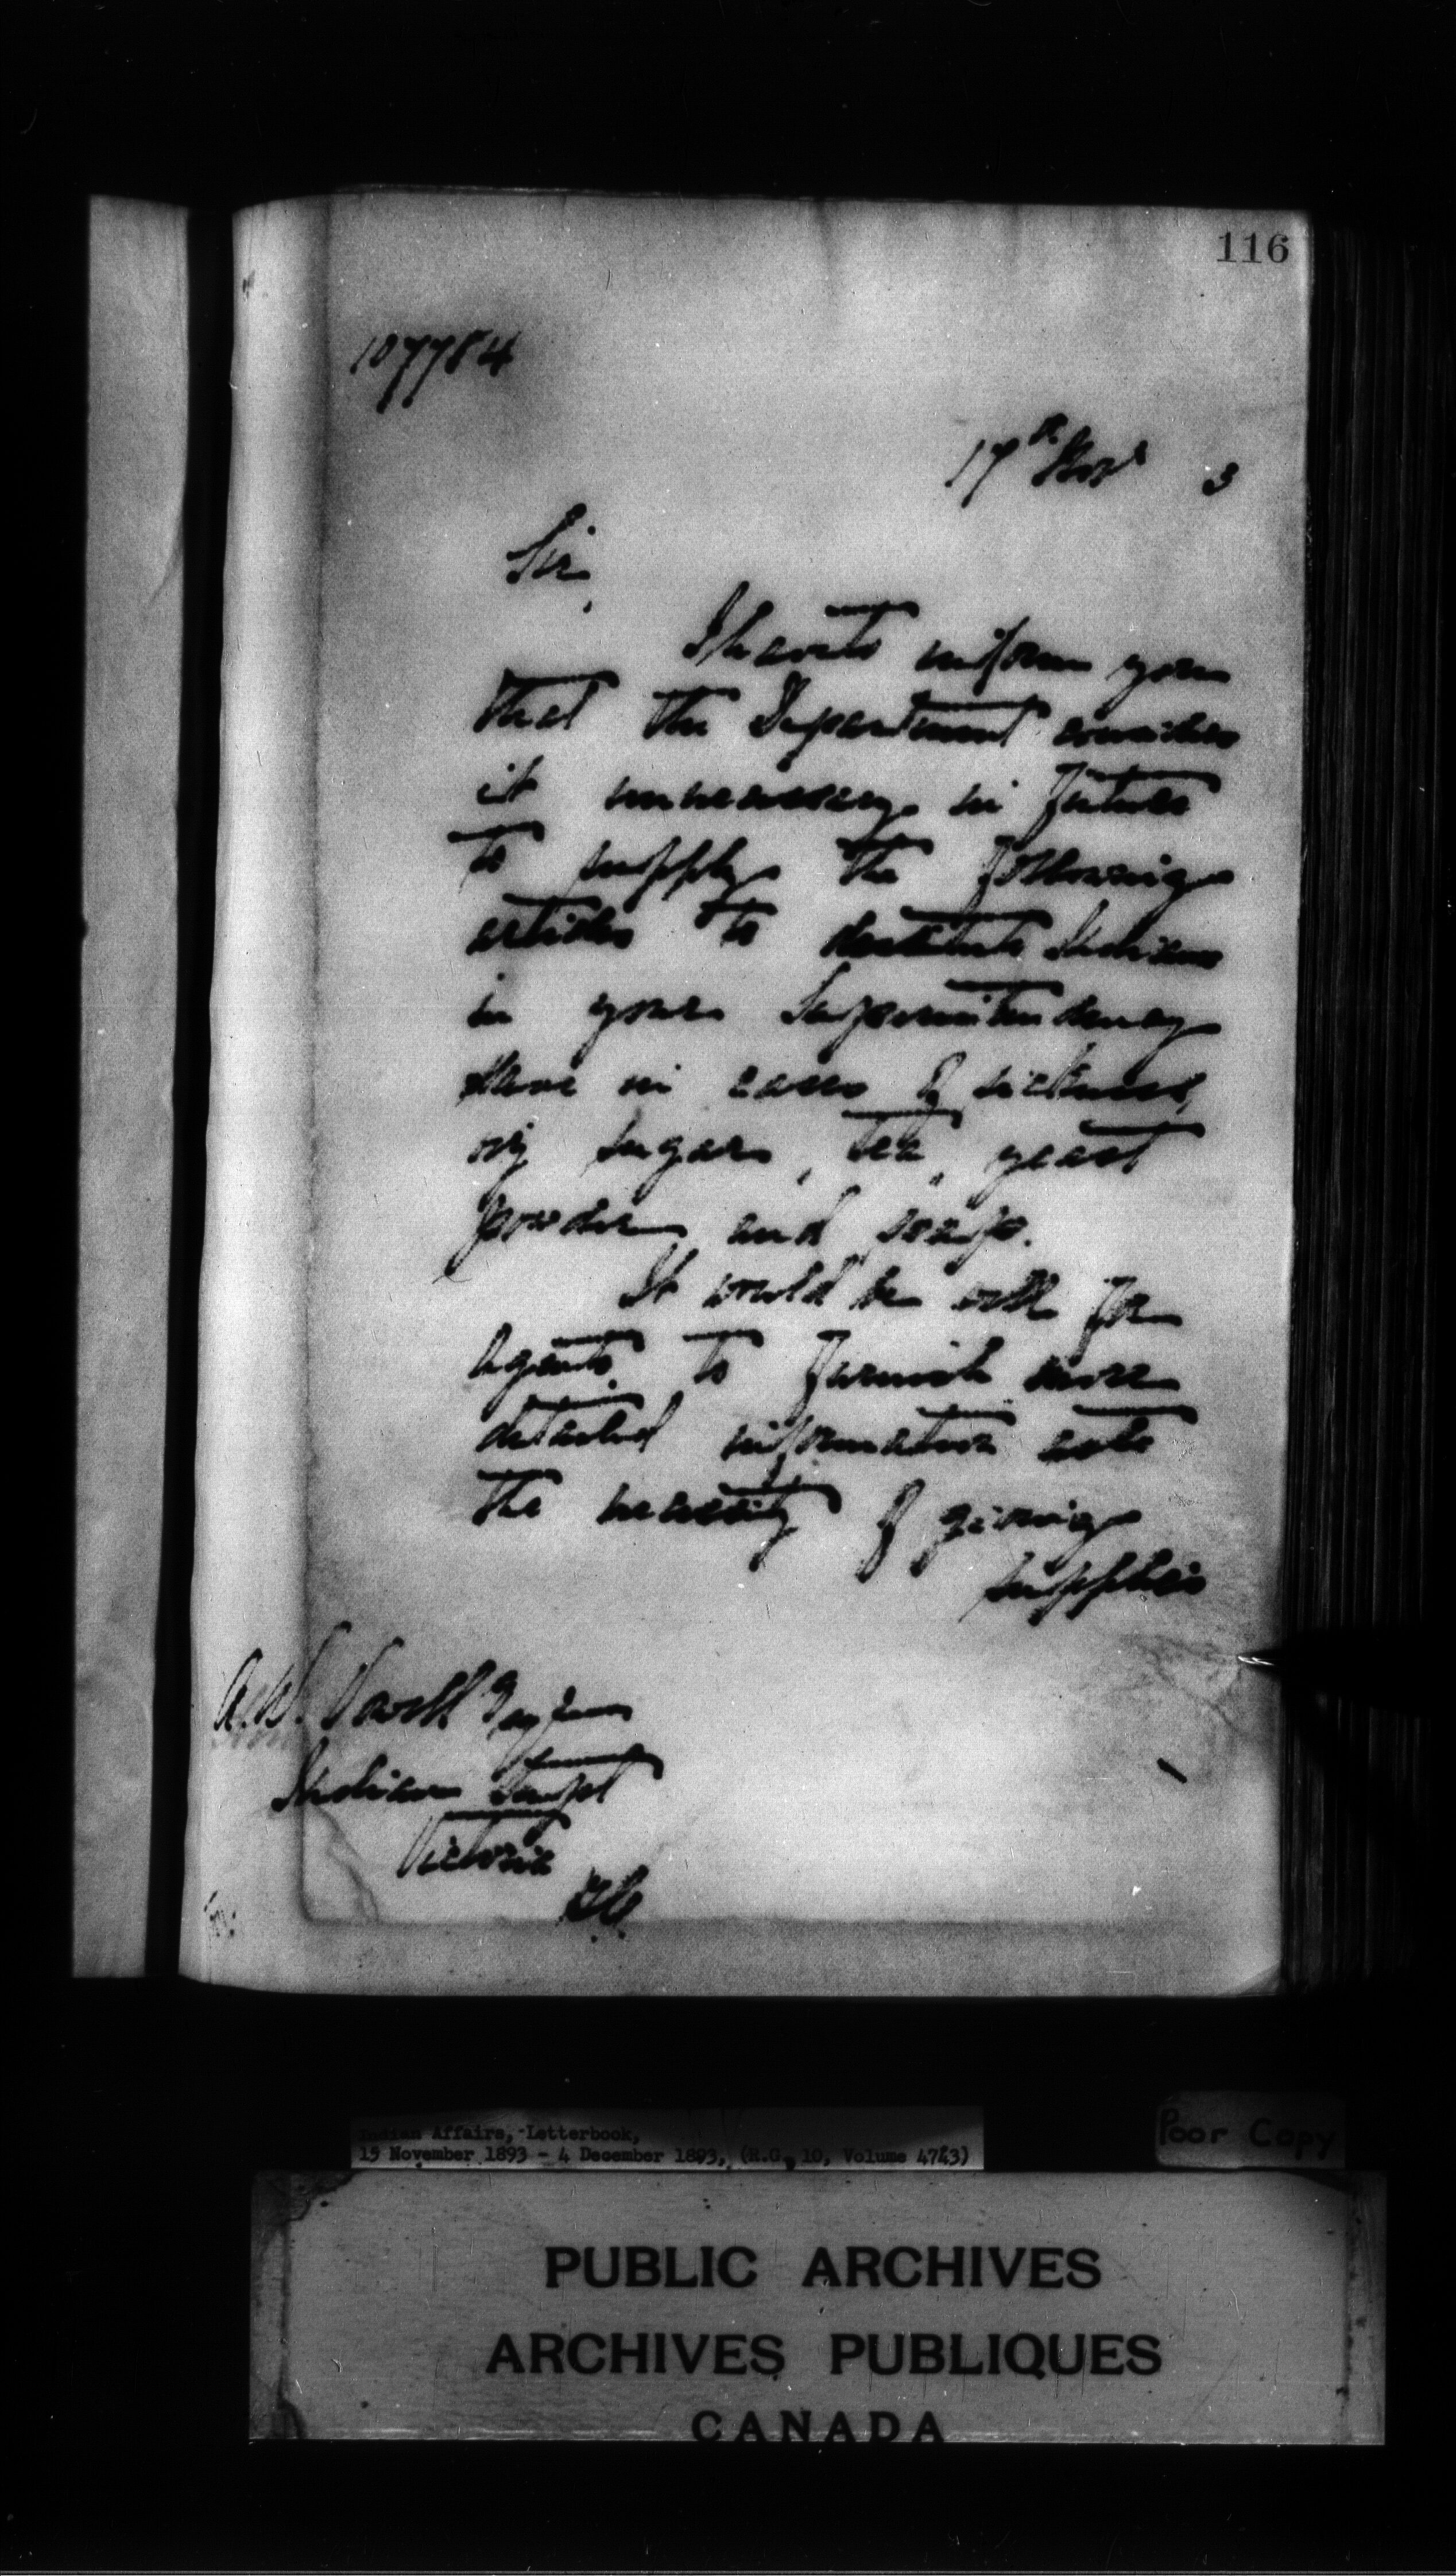 116
107784
17th Novr 3
Sir,
I have to inform you
that the Department considers
it unnecessary in future
to supply the following
articles to destitute Indians
in your Superintendency
save in cases of sickness,
viz sugar, tea, yeast
powder and soap.
It would be well for
Agents to furnish more
detailed information as to
the necessity of giving
supplies
A.W. Vowell Esquire
Indian Supt
Victoria
B.C.
Indian Affairs, Letterbook,
15 November 1893 - 4 December 1893, (R.G. 10, Volume 4743)
Poor Copy
PUBLIC ARCHIVES
ARCHIVES PUBLIQUES
CANADA